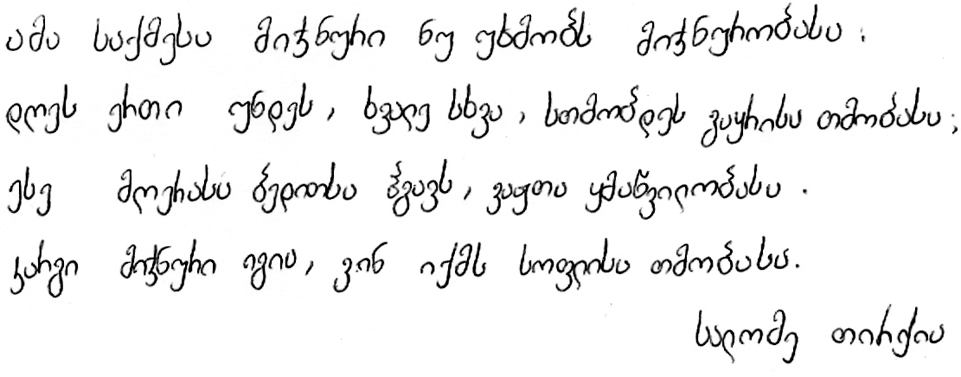 ამა საქმესა მიჯნური ნუ უხმობს მიჯნურობასა:
დღეს ერთი უნდეს, ხვალე სხვა, სთმობდეს გაყრისა თმობასა;
ესე მღერასა ბედითსა ჰგავს, ვაჟთა ყმაწვილობასა.
კარგი მიჯნური იგია, ვინ იქმს სოფლისა თმობასა.
სალომე თირქია